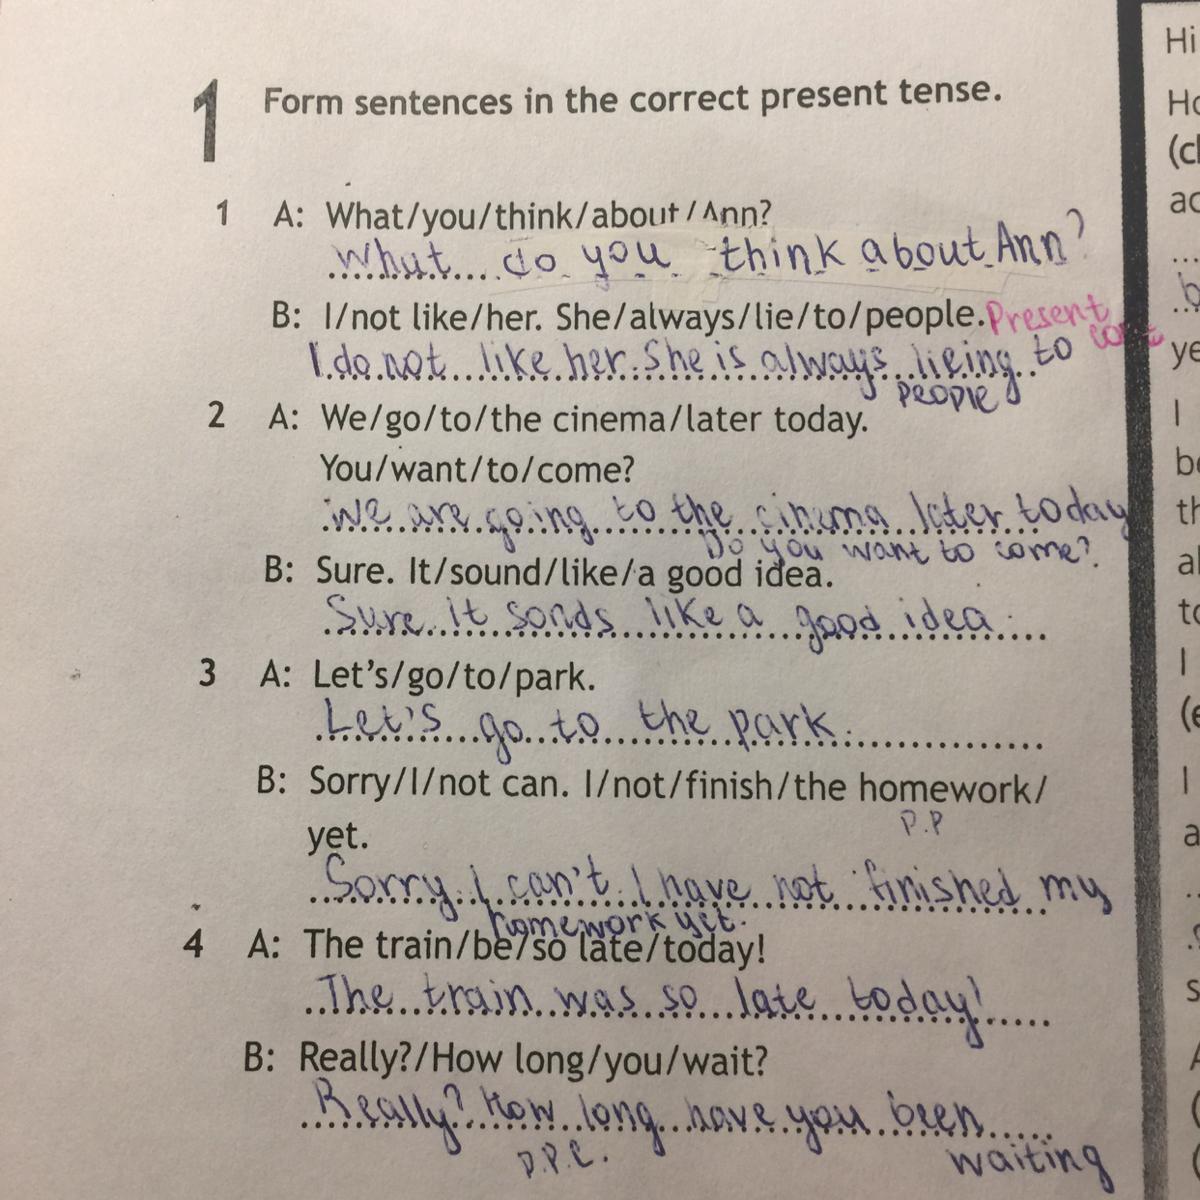 1 Form sentences in the correct present tense.
1 A: What/you/think/about/Ann?
What do you think about Ann?
B: I/not like/her. She/always/lie/to/people. Present cont
I do not like her. She is always lieing to
people
2 A: We/go/to/the cinema/later today.
You/want/to/come?
We are going to the cinema later today
Do you want to come?
B: Sure. It/sound/like/a good idea.
Sure. It sonds like a good idea.
3 A: Let's/go/to/park.
Let's go to the park.
B: Sorry/I/not can. I/not/finish/the homework/
yet.
P.P
Sorry. I can't. I have not finished my
homework yet.
4 A: The train/be/so late/today!
The train was so late today!
B: Really?/How long/you/wait?
Really? How long have you been
P.P.C. waiting
Hi
Ho
(cl
ac
b
ye
I
be
th
al
to
I
(e
I
a
s